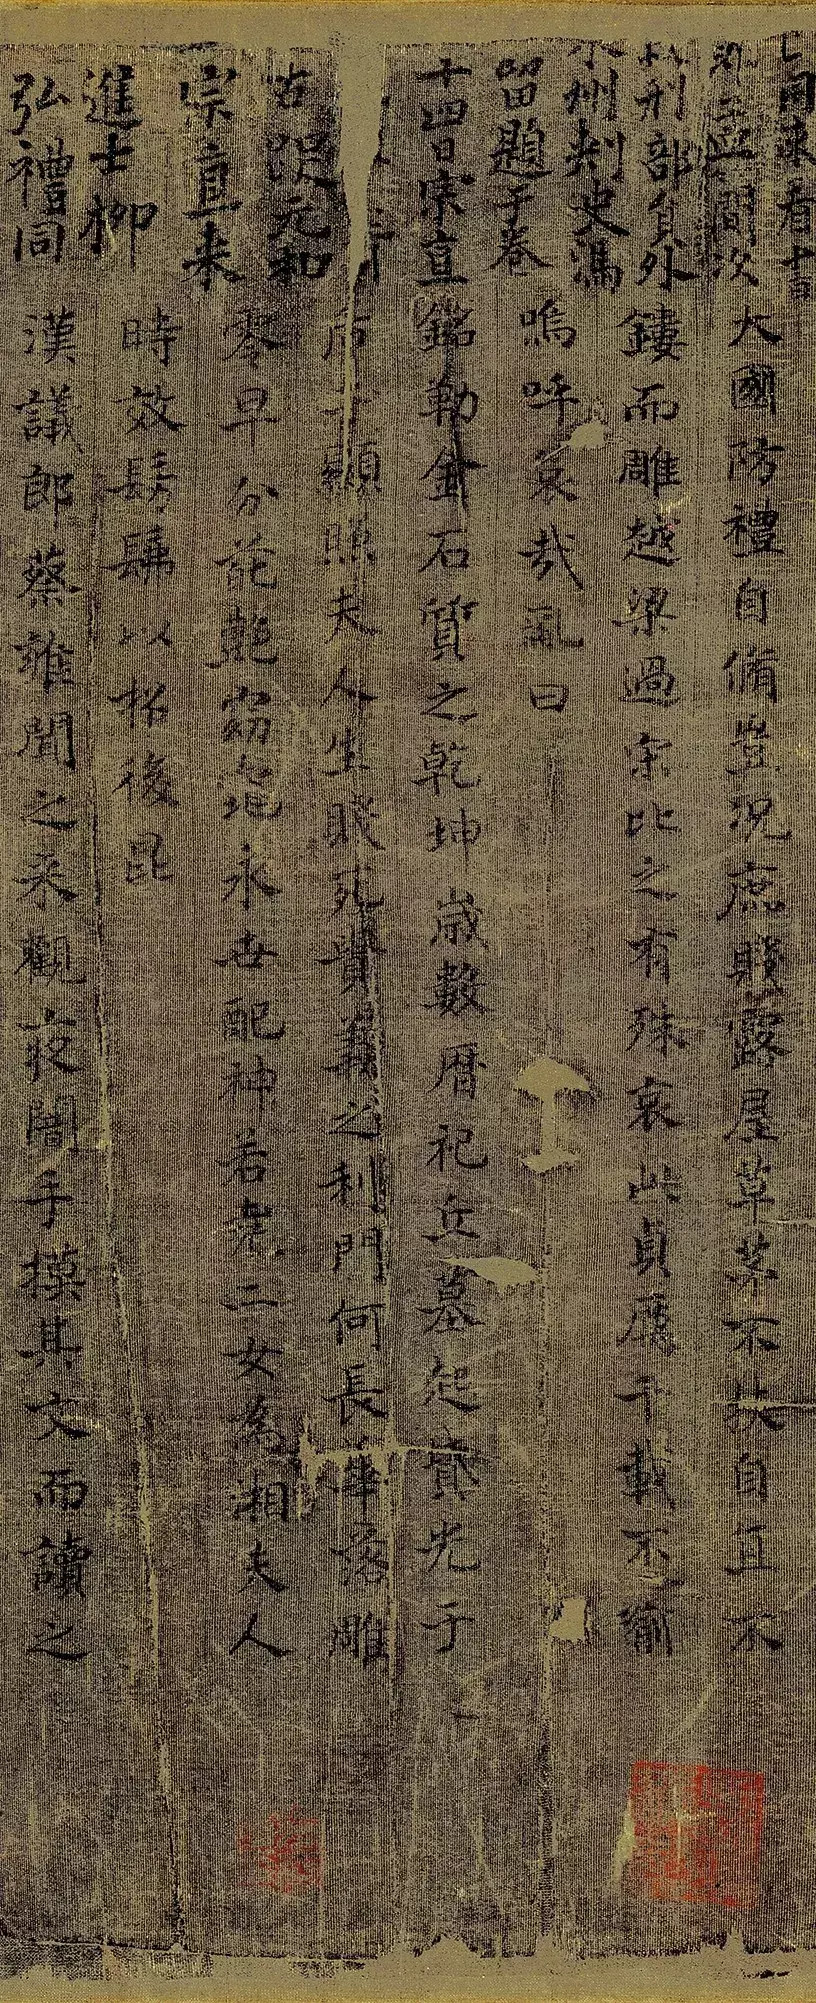 同來看
間次
刑部員外
州刾史馮
留題于卷
十四日宗直
元和
宗直來
進士柳
弘禮同
大國防禮自脩豈況庶賤露屋草茅不扶自直不
鏤而雕越梁過宋比之有殊哀此貞厲千載不渝
嗚呼哀哉亂曰
銘勒金石質之乾坤歲數曆祀丘墓起墳光于
后土顯照夫人生賤死貴義之利門何長華落雕
零早分葩艷窈窕永世配神若堯二女為湘夫人
時效髣髴以招後昆
漢議郎蔡雍聞之來觀夜闇手摸其文而讀之